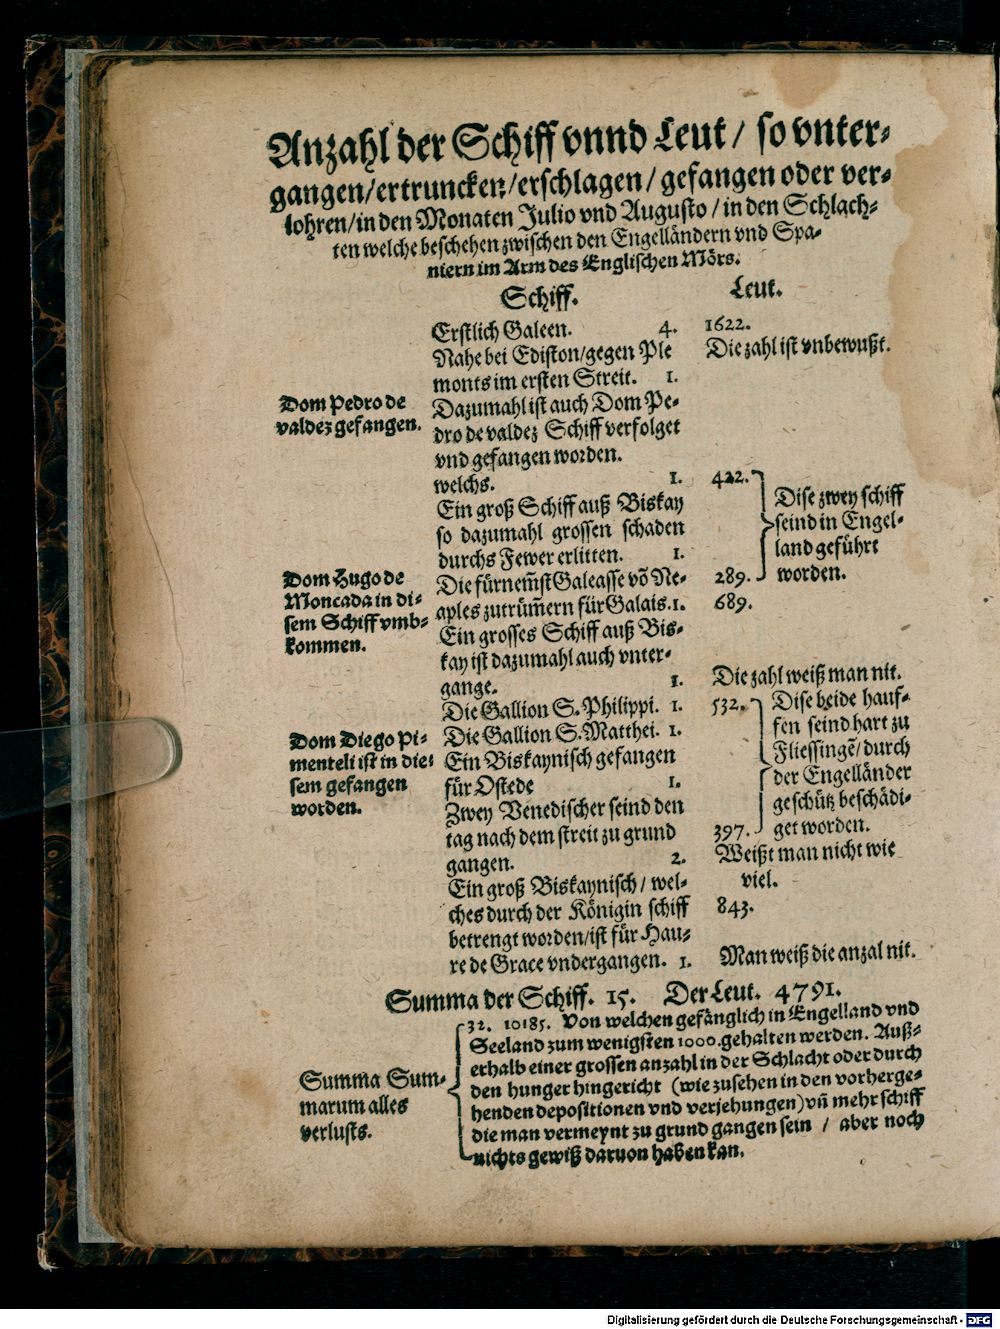 Anzahl der Schiff vnnd Leut / so vnter-
gangen/ertruncken/erschlagen/gefangen oder ver-
lohren/in den Monaten Julio vnd Augusto/in den Schlach-
ten welche beschehen zwischen den Engelländern vnd Spa-
niern im Arm des Englischen Mörs.
Schiff. Leut.
Erstlich Galeen. 4. 1622.
Nahe bei Ediston/gegen Ple Die zahl ist vnbewußt.
monts im ersten Streit. 1.
Dom Pedro de
valdez gefangen.
Dazumahl ist auch Dom Pe-
dro de valdez Schiff verfolget
vnd gefangen worden.
welchs. 1. 422.
Ein groß Schiff auß Biskay
so dazumahl grossen schaden
durchs Fewer erlitten. 1.
289.
Dise zwey schiff
seind in Engel-
land geführt
worden.
Dom Hugo de
Moncada in di-
sem Schiff vmb-
kommen.
Die fürnem̃st Galeasse võ Ne-
aples zutrüm̃ern für Galais. 1. 689.
Ein grosses Schiff auß Bis-
kay ist dazumahl auch vnter-
gange. 1. Die zahl weiß man nit.
Die Gallion S. Philippi. 1. 532.
Die Gallion S. Matthei. 1.
Dom Diego Pi-
menteli ist in die-
sem gefangen
worden.
Ein Biskaynisch gefangen
für Ostede 1.
397.
Dise beide hauf-
fen seind hart zu
Fliessingẽ/durch
der Engelländer
geschütz beschädi-
get worden.
Zwey Venedischer seind den
tag nach dem streit zu grund
gangen. 2. Weißt man nicht wie
viel.
Ein groß Biskaynisch / wel-
ches durch der Königin schiff 843.
betrengt worden/ist für Hau-
re de Grace vndergangen. 1. Man weiß die anzal nit.
Summa der Schiff. 15. Der Leut. 4791.
Summa Sum-
marum alles
verlusts.
32. 10185. Von welchen gefänglich in Engelland vnd
Seeland zum wenigsten 1000. gehalten werden. Auß-
erhalb einer grossen anzahl in der Schlacht oder durch
den hunger hingericht (wie zusehen in den vorherge-
henden depositionen vnd verjehungen) vñ mehr schiff
die man vermeynt zu grund gangen sein / aber noch
nichts gewiß daruon haben kan.
Digitalisierung gefördert durch die Deutsche Forschungsgemeinschaft - DFG